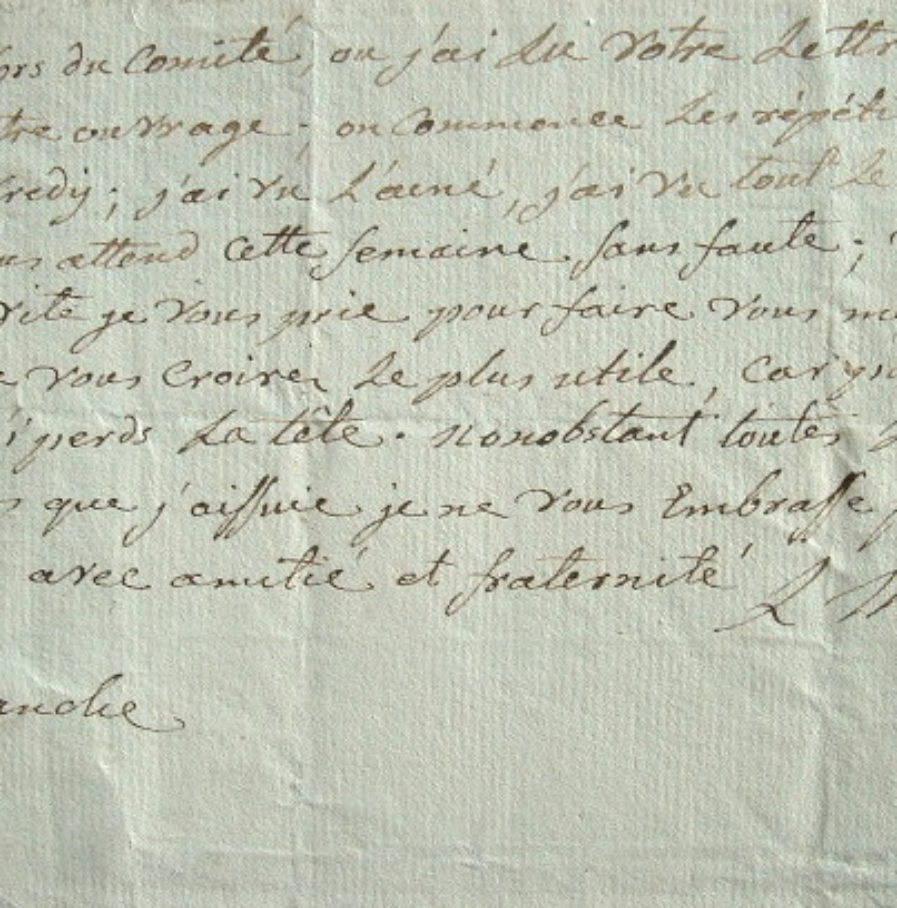 ors du Comité, ou j'ai Lu Votre Lettr
tre ouvrage; on Commence Les répéti
redy; j'ai vu L'ainé, j'ai Vu tout Le
us attend cette semaine sans faute;
Vite je Vous prie pour faire Vous m
e vous Croirez Le plus utile, Car
i perds La tête. nonobstant toutes
s que j'aissuie je ne Vous Embrasse
avec amitié et fraternité
anche